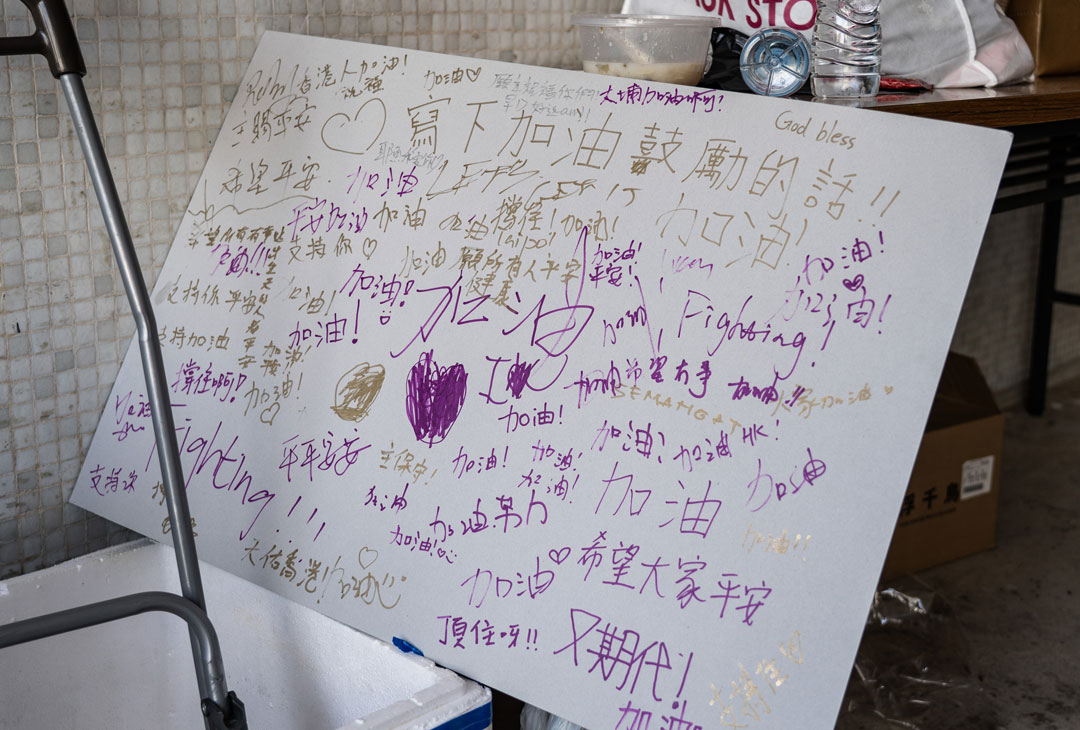 香港人加油!
加油♡
大埔加油呀!
God bless
主賜平安
寫下加油鼓勵的話!!
希望平安
加油
平安加油
加油
加油
撐住!
加油!
加油!
支持你♡
加油
願所有人平安
健康
加油!
平安!
加油!
加油!!!
支持你
平安
加油!
加油!
加油
加油!
Fighting!
支持加油
加油!
撐住啊!
加油!
I
加油
希望冇事
加油!!
SEMANGAT
加油
加油!
Fighting!!!
平平安安
主保守!
加油!
加油!
加油!
加油!
加油 HK!
加油
加油
支持
加油
加油!
加油努力
加油!!
天佑香港!加油
加油
希望大家平安
頂住呀!!
又期代!
加油